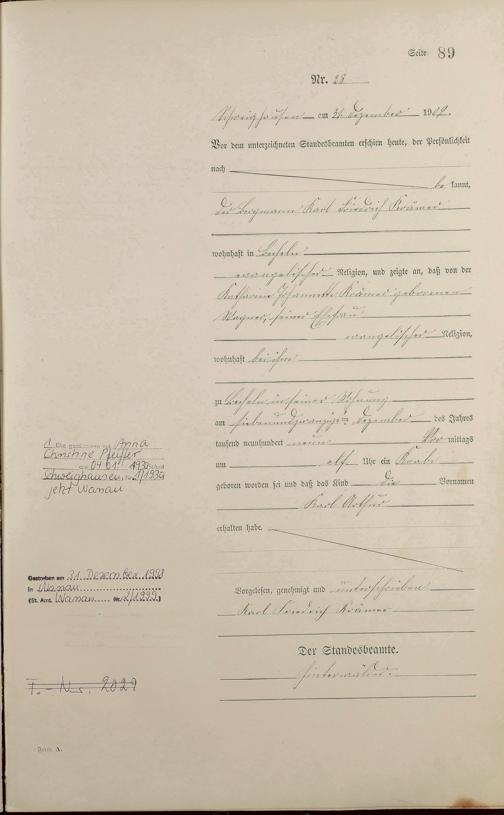 Seite 89
Nr. 28
Schweighausen am 31. Dezember 1909.
Vor dem unterzeichneten Standesbeamten erschien heute, der Persönlichkeit
nach
be kannt,
der Bergmann Karl Friedrich Krämer
wohnhaft in Becheln
evangelischer Religion, und zeigte an, daß von der
Katharine Johannette Krämer geborenen
Wagner, seiner Ehefrau
evangelischer Religion,
wohnhaft bei ihm
zu Becheln in seiner Wohnung
am siebenundzwanzigten Dezember des Jahres
tausend neunhundert neun Vor mittags
um elf Uhr ein Knabe
geboren worden sei und daß das Kind die Vornamen
Karl Arthur
erhalten habe.
Vorgelesen, genehmigt und unterschrieben
Karl Friedrich Krämer
Der Standesbeamte.
Hintermälder.
1. Ehe geschlossen mit Anna
Christine Pfeifer
am 04.01.1936
Schweighausen, Nr.
jetzt Nassau
Gestorben am 31. Dezember 1993
in Nassau
(St. Amt Nassau Nr. 2/1994)
T.-Nr. 2029
Form A.